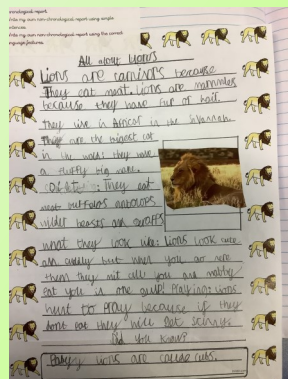 chronological report
write my own non-chronological report using simple
sentences.
write my own non-chronological report using the correct
language features.
All about Lions
Lions are carnivors because
They eat meat. Lions are mammles
because they have fur of hair.
they live in Africa in the savannah.
They are the bigest cat
in the world they have
a fluffy big mane.
They eat
meat buffalos antelops
wilder beasts and giraffes
what they look like: Lions look cute
and cuddly but when you go near
them they mit
eat you in one gulp! Lions
hunt to Pray because if they
dont eat they will get
Did you know?
Baby Lions are cubs.